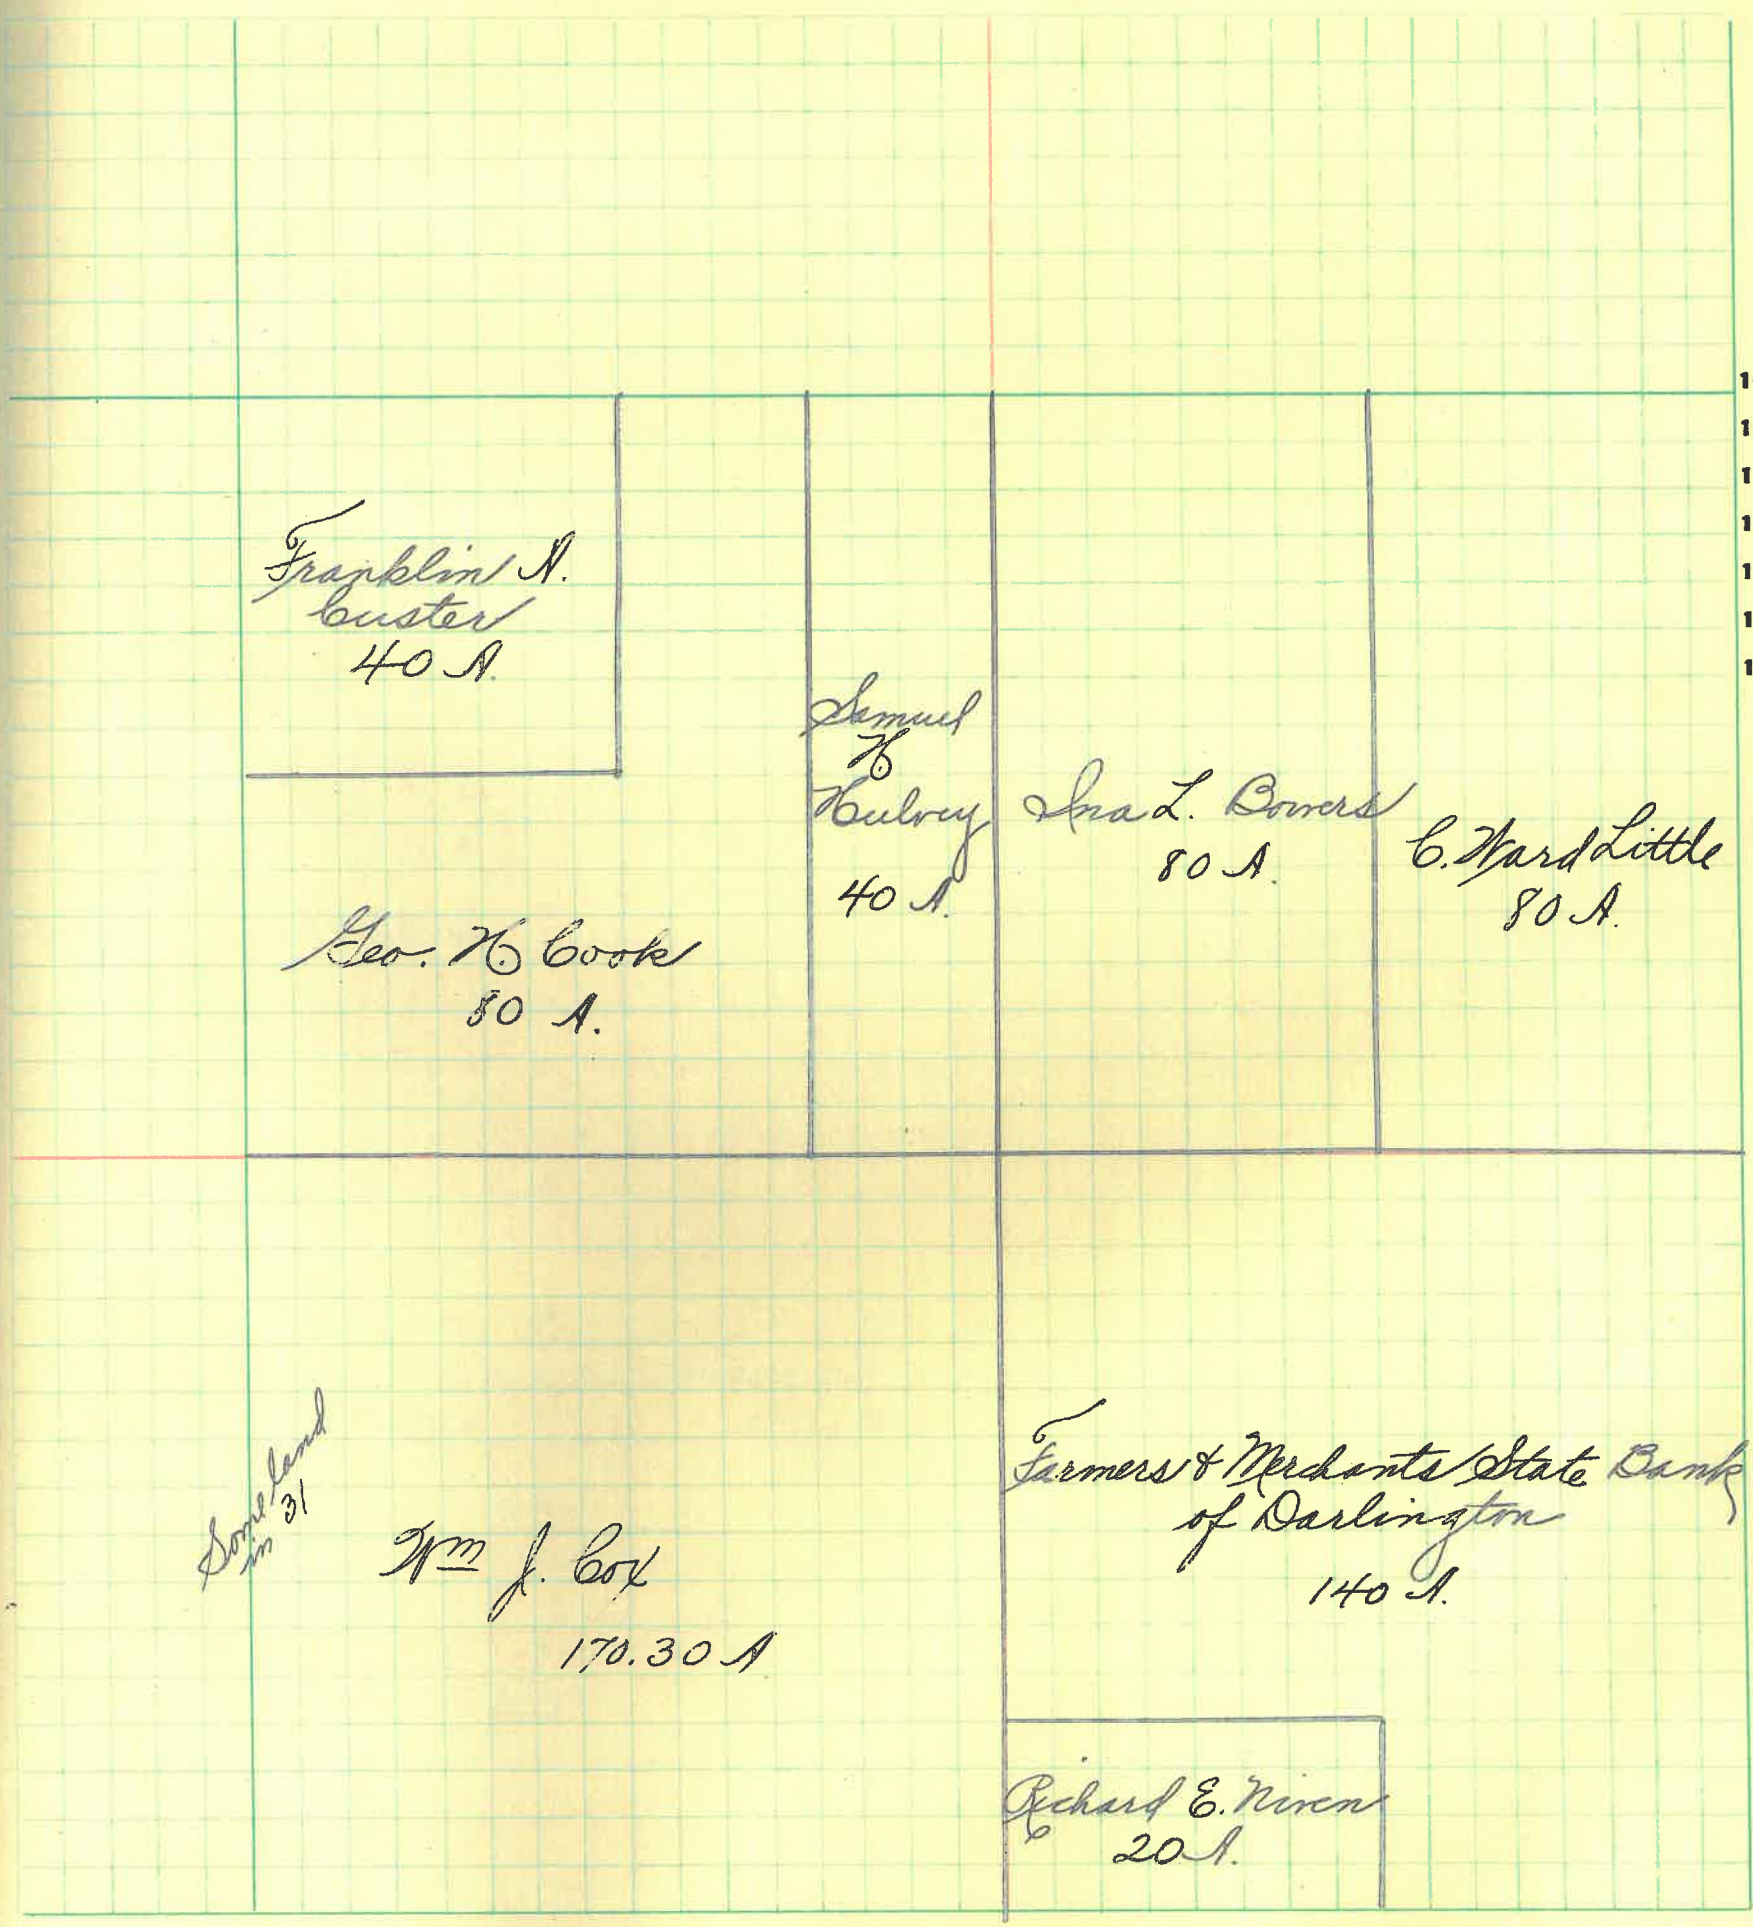 Franklin N.
Custer
40 A.
Samuel
H
Hulvey
40 A.
Ina L. Bowers
80 A.
C. Ward Little
80 A.
Geo. H Cook
80 A.
Some land
in 31
Wm J. Cox
170.30 A
Farmers & Merchants State Bank
of Darlington
140 A.
Richard E. Niven
20 A.
1
1
1
1
1
1
1